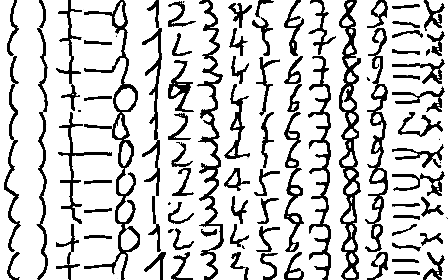 ( ) + - 0 1 2 3 4 5 6 7 8 9 = x
( ) + - 0 1 2 3 4 5 6 7 8 9 = x
( ) + - 0 1 2 3 4 5 6 7 8 9 = x
( ) + - 0 1 2 3 4 5 6 7 8 9 = x
( ) + - 0 1 2 3 4 5 6 7 8 9 = x
( ) + - 0 1 2 3 4 5 6 7 8 9 = x
( ) + - 0 1 2 3 4 5 6 7 8 9 = x
( ) + - 0 1 2 3 4 5 6 7 8 9 = x
( ) + - 0 1 2 3 4 5 6 7 8 9 = x
( ) + - 0 1 2 3 2 5 6 7 8 9 = x